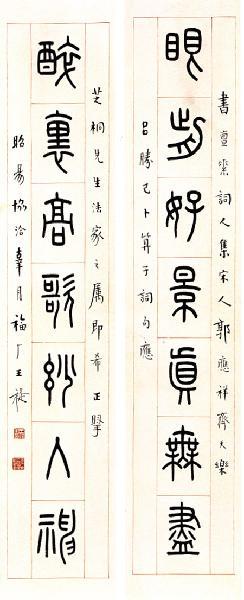 書亶素詞人集宋人郭應祥齊天樂
眼前好景真無盡
呂勝己卜算子詞句應
芝桐先生法家之屬即希正擘
醉裏高歌妙入神
昭昜協洽辜月福厂王禔